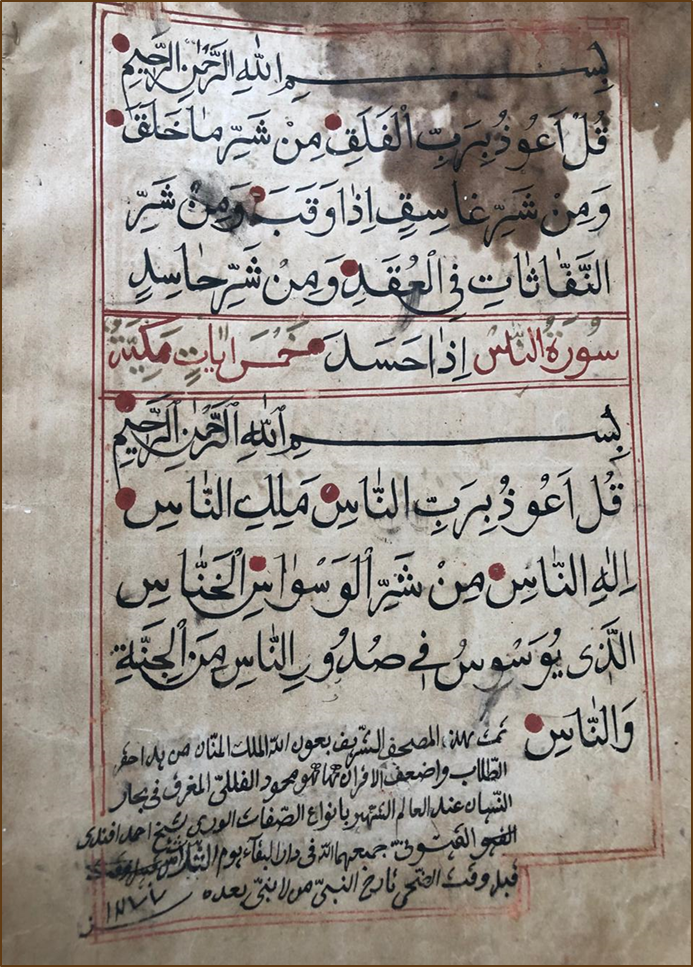 بِسْمِ اللّٰهِ الرَّحْمٰنِ الرَّحِيمِ
قُلْ اَعُوذُ بِرَبِّ الْفَلَقِ مِنْ شَرِّ مَا خَلَقَ
وَمِنْ شَرِّ غَاسِقٍ اِذَا وَقَبَ وَمِنْ شَرِّ
النَّفَّاثَاتِ فِى الْعُقَدِ وَمِنْ شَرِّ حَاسِدٍ
سُورَةُ النَّاسْ اِذَا حَسَدَ خَمْسَ اٰيَاتٍ مَكِّيَّةٌ
بِسْمِ اللّٰهِ الرَّحْمٰنِ الرَّحِيمِ
قُلْ اَعُوذُ بِرَبِّ النَّاسِ مَلِكِ النَّاسِ
اِلٰهِ النَّاسِ مِنْ شَرِّ الْوَسْوَاسِ الْخَنَّاسِ
الَّذِى يُوَسْوِسُ فِى صُدُورِ النَّاسِ مِنَ الْجِنَّةِ
وَالنَّاسِ
تمت بهذه المصحف الشريف بعون الله الملك المنان من يد احقر
الطلاب واضعف الاقران محمود المغرق فى بحار
النسيان عند العالم الشهير بانواع الصفات الورى شيخ احمد افندى
جمعهما الله فى دار البقاء يوم الثلاث
قبل وقت الضحى تاريخ النبى من لا نبى بعده
١٢٧٧